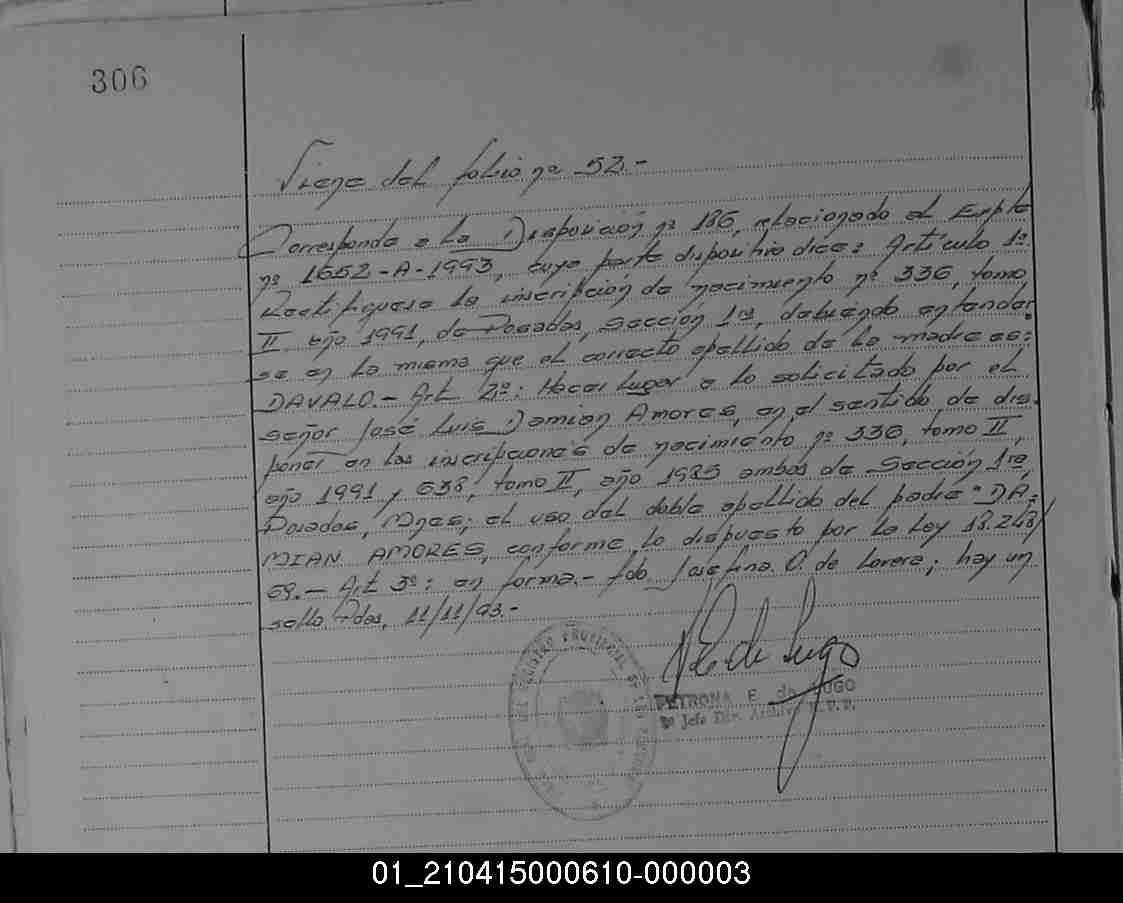 306
Viene del folio nº 52.-
Corresponde a la Disposición nº 186, relacionado al Expte
nº 1652-A-1993, cuya parte dispositiva dice: Artículo 1º.
Rectifíquese la inscripción de nacimiento nº 336, tomo
II año 1991, de Posadas, Sección 1ra, debiendo entender
se en la misma que el correcto apellido de la madre es:
DAVALO.- Art. 2º: Hacer lugar a lo solicitado por el
señor José Luis Damian Amores, en el sentido de dis-
poner en las inscripciones de nacimiento nº 336, tomo II,
año 1991 y 638, tomo II, año 1985 ambos de Sección 1ra
Posadas, Mnes; el uso del doble apellido del padre "DA-
MIAN AMORES, conforme lo dispuesto por la Ley 18.248/
69.- Art 3º: en forma.- fdo Josefina O. de Lovera; hay un
sello Pdas, 11/11/93.-
PETRONA E. de LUGO
Jefe Div. Archivo R.P.P.
REGISTRO PROVINCIAL DE LAS PERSONAS
01_210415000610-000003